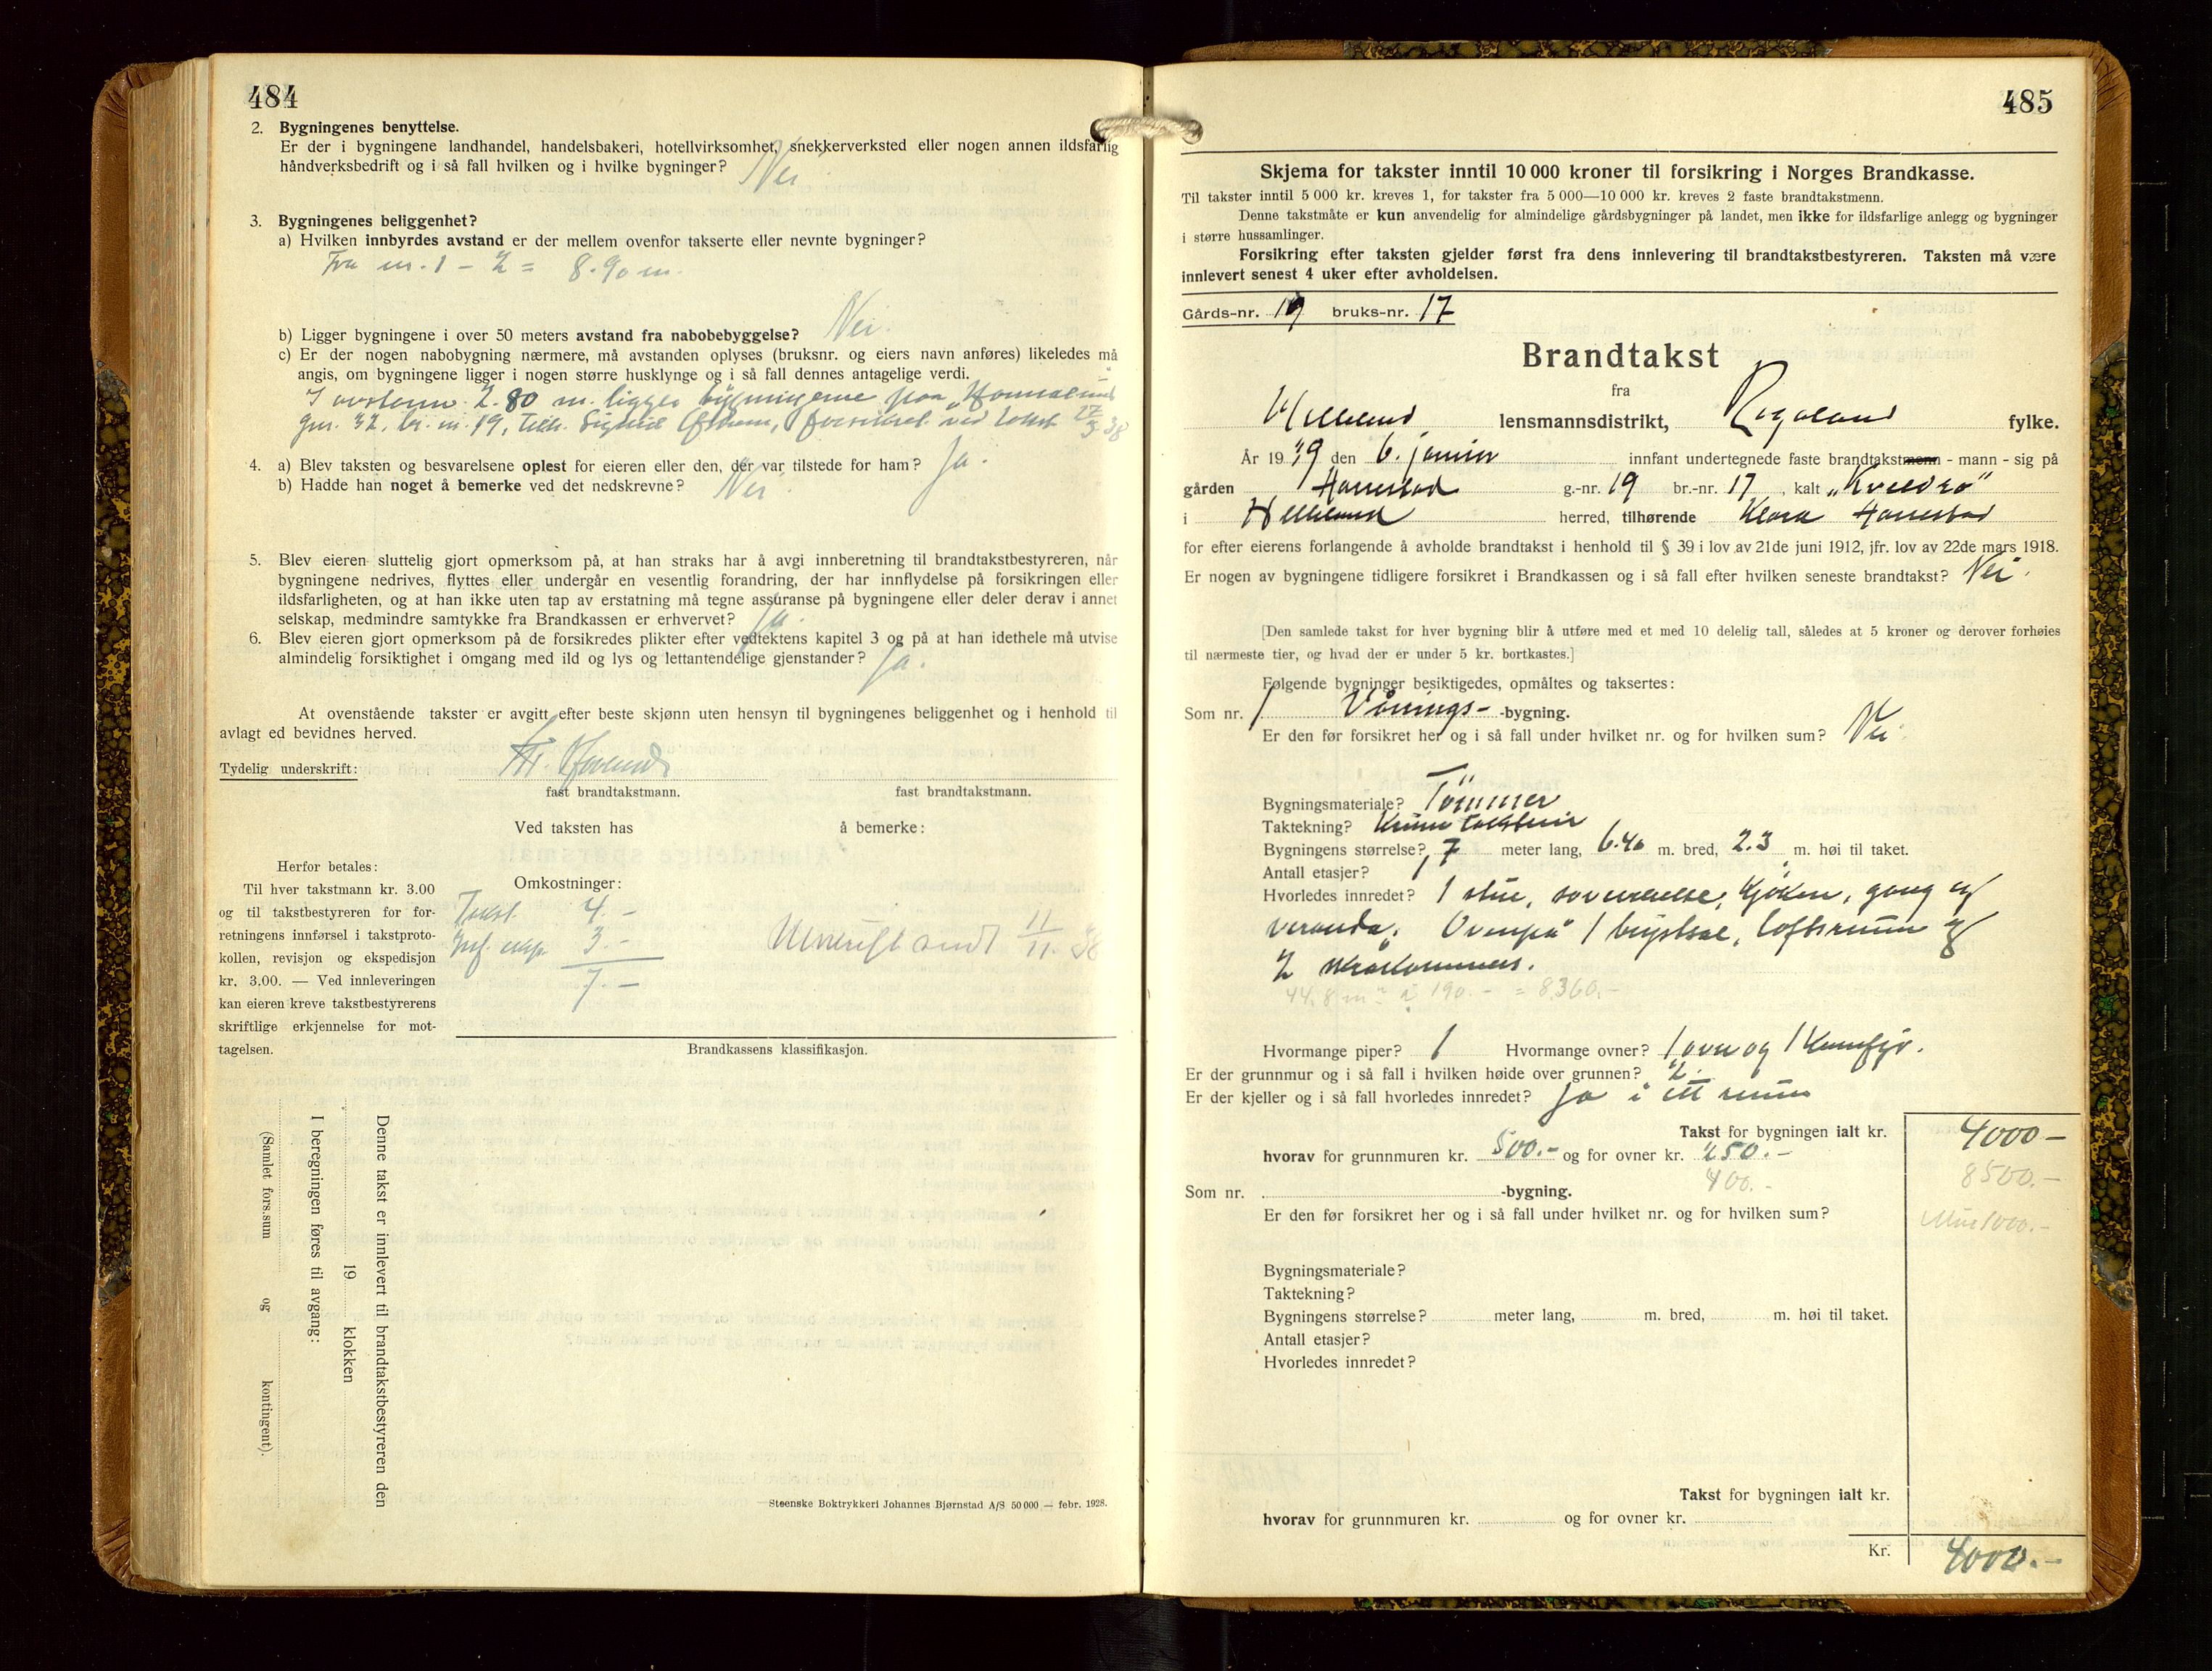 484
2. Bygningenes benyttelse.
Er der i bygningene landhandel, handelsbakeri, hotellvirksomhet, snekkerverksted eller nogen annen ildsfarlig
håndverksbedrift og i så fall hvilken og i hvilke bygninger? Nei
3. Bygningenes beliggenhet?
a) Hvilken innbyrdes avstand er der mellem ovenfor takserte eller nevnte bygninger?
Fra nr. 1 - 2 = 8.90 m.
b) Ligger bygningene i over 50 meters avstand fra nabobebyggelse? Nei.
c) Er der nogen nabobygning nærmere, må avstanden oplyses (bruksnr. og eiers navn anføres) likeledes må
angis, om bygningene ligger i nogen større husklynge og i så fall dennes antagelige verdi.
I avstann 2.80 m. ligger bygningene paa
gnr. 32, br. nr. 19, tilh. Sigrid forsikret ved takst 27/5 38
4. a) Blev taksten og besvarelsene oplest for eieren eller den, der var tilstede for ham? Ja.
b) Hadde han noget å bemerke ved det nedskrevne? Nei
5. Blev eieren sluttelig gjort opmerksom på, at han straks har å avgi innberetning til brandtakstbestyreren, når
bygningene nedrives, flyttes eller undergår en vesentlig forandring, der har innflydelse på forsikringen eller
ildsfarligheten, og at han ikke uten tap av erstatning må tegne assuranse på bygningene eller deler derav i annet
selskap, medmindre samtykke fra Brandkassen er erhvervet? Ja.
6. Blev eieren gjort opmerksom på de forsikredes plikter efter vedtektens kapitel 3 og på at han idethele må utvise
almindelig forsiktighet i omgang med ild og lys og lettantendelige gjenstander? Ja.
At ovenstående takster er avgitt efter beste skjønn uten hensyn til bygningenes beliggenhet og i henhold til
avlagt ed bevidnes herved.
Tydelig underskrift:
fast brandtakstmann. fast brandtakstmann.
Ved taksten has å bemerke:
Herfor betales:
Til hver takstmann kr. 3.00
og til takstbestyreren for for-
retningens innførsel i takstproto-
kollen, revisjon og ekspedisjon
kr. 3.00. — Ved innleveringen
kan eieren kreve takstbestyrerens
skriftlige erkjennelse for mot-
tagelsen.
Omkostninger:
Takst 4.-
Inf. eksp. 3.-
7.-
Utskrift sendt 11/11. 38
Brandkassens klassifikasjon.
Denne takst er innlevert til brandtakstbestyreren den
19 klokken
I beregningen føres til avgang:
(Samlet fors.sum og kontingent).
Steenske Boktrykkeri Johannes Bjørnstad A/S 50 000 — febr. 1928.
485
Skjema for takster inntil 10 000 kroner til forsikring i Norges Brandkasse.
Til takster inntil 5 000 kr. kreves 1, for takster fra 5 000—10 000 kr. kreves 2 faste brandtakstmenn.
Denne takstmåte er kun anvendelig for almindelige gårdsbygninger på landet, men ikke for ildsfarlige anlegg og bygninger
i større hussamlinger.
Forsikring efter taksten gjelder først fra dens innlevering til brandtakstbestyreren. Taksten må være
innlevert senest 4 uker efter avholdelsen.
Gårds-nr. 19 bruks-nr. 17
Brandtakst
fra
Helleland lensmannsdistrikt, Rogaland fylke.
År 1939 den 6. januar innfant undertegnede faste brandtakstmenn - mann - sig på
gården g.-nr. 19 br.-nr. 17, kalt „Kveldro"
i Helleland herred, tilhørende Klara
for efter eierens forlangende å avholde brandtakst i henhold til § 39 i lov av 21de juni 1912, jfr. lov av 22de mars 1918.
Er nogen av bygningene tidligere forsikret i Brandkassen og i så fall efter hvilken seneste brandtakst? Nei.
[Den samlede takst for hver bygning blir å utføre med et med 10 delelig tall, således at 5 kroner og derover forhøies
til nærmeste tier, og hvad der er under 5 kr. bortkastes.]
Følgende bygninger besiktigedes, opmåltes og taksertes:
Som nr. 1 Vånings- -bygning.
Er den før forsikret her og i så fall under hvilket nr. og for hvilken sum? Nei
Bygningsmateriale? Tömmer
Taktekning?
Bygningens størrelse? 7 meter lang, 6.40 m. bred, 2.3 m. høi til taket.
Antall etasjer? 1
Hvorledes innredet? 1 stue, soveværelse, kjöken, gang og
veranda. Ovenpå 1 kvistsal, loftsrum og
2
44.8 m² à 190.- = 8360.-
Hvormange piper? 1 Hvormange ovner? 1 ovn og 1 komfyr.
Er der grunnmur og i så fall i hvilken høide over grunnen? 2.
Er der kjeller og i så fall hvorledes innredet? Ja i ett rum
Takst for bygningen ialt kr. 4000-
hvorav for grunnmuren kr. 500.- og for ovner kr. 250.-
400.- 8500.-
Som nr. -bygning.
Er den før forsikret her og i så fall under hvilket nr. og for hvilken sum? Mur 1000.-
Bygningsmateriale?
Taktekning?
Bygningens størrelse? meter lang, m. bred, m. høi til taket.
Antall etasjer?
Hvorledes innredet?
Takst for bygningen ialt kr.
hvorav for grunnmuren kr. og for ovner kr.
Kr. 4000.-